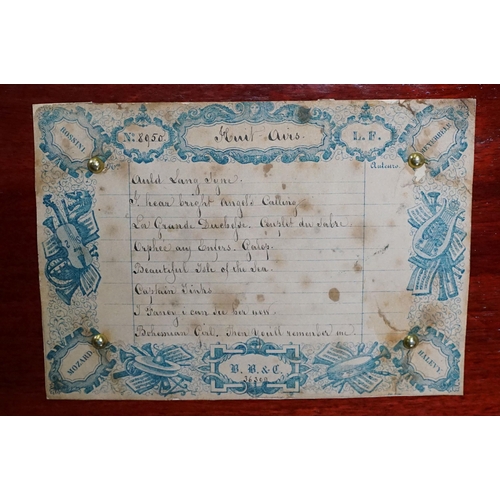 ROSSINI
No. 8950
Huit Airs.
L. F.
MEYERBEER
Auteurs.
Auld Lang Syne.
I hear bright Angels Calling
La Grande Duchesse. Couplet du Sabre
Orphée aux Enfers - Galop.
Beautiful Isle of the Sea.
Captain Jinks.
I Fancy I can see her now.
Bohemian Girl. Then You'll remember me
MOZARD
B. B. & C.
HALEVY